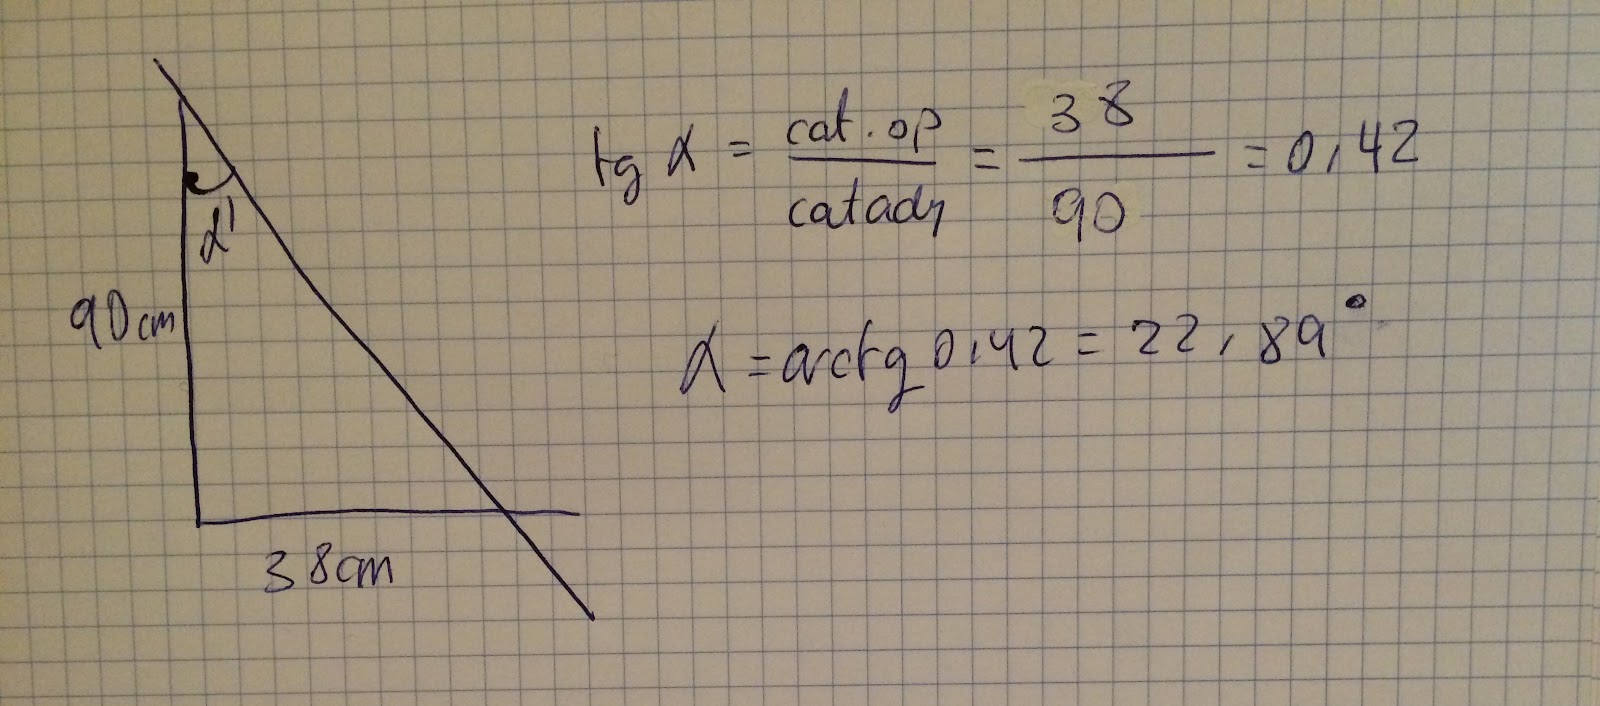 α'
90cm
38cm
tg α = cat.op / catady = 38 / 90 = 0,42
α = arctg 0,42 = 22,89°